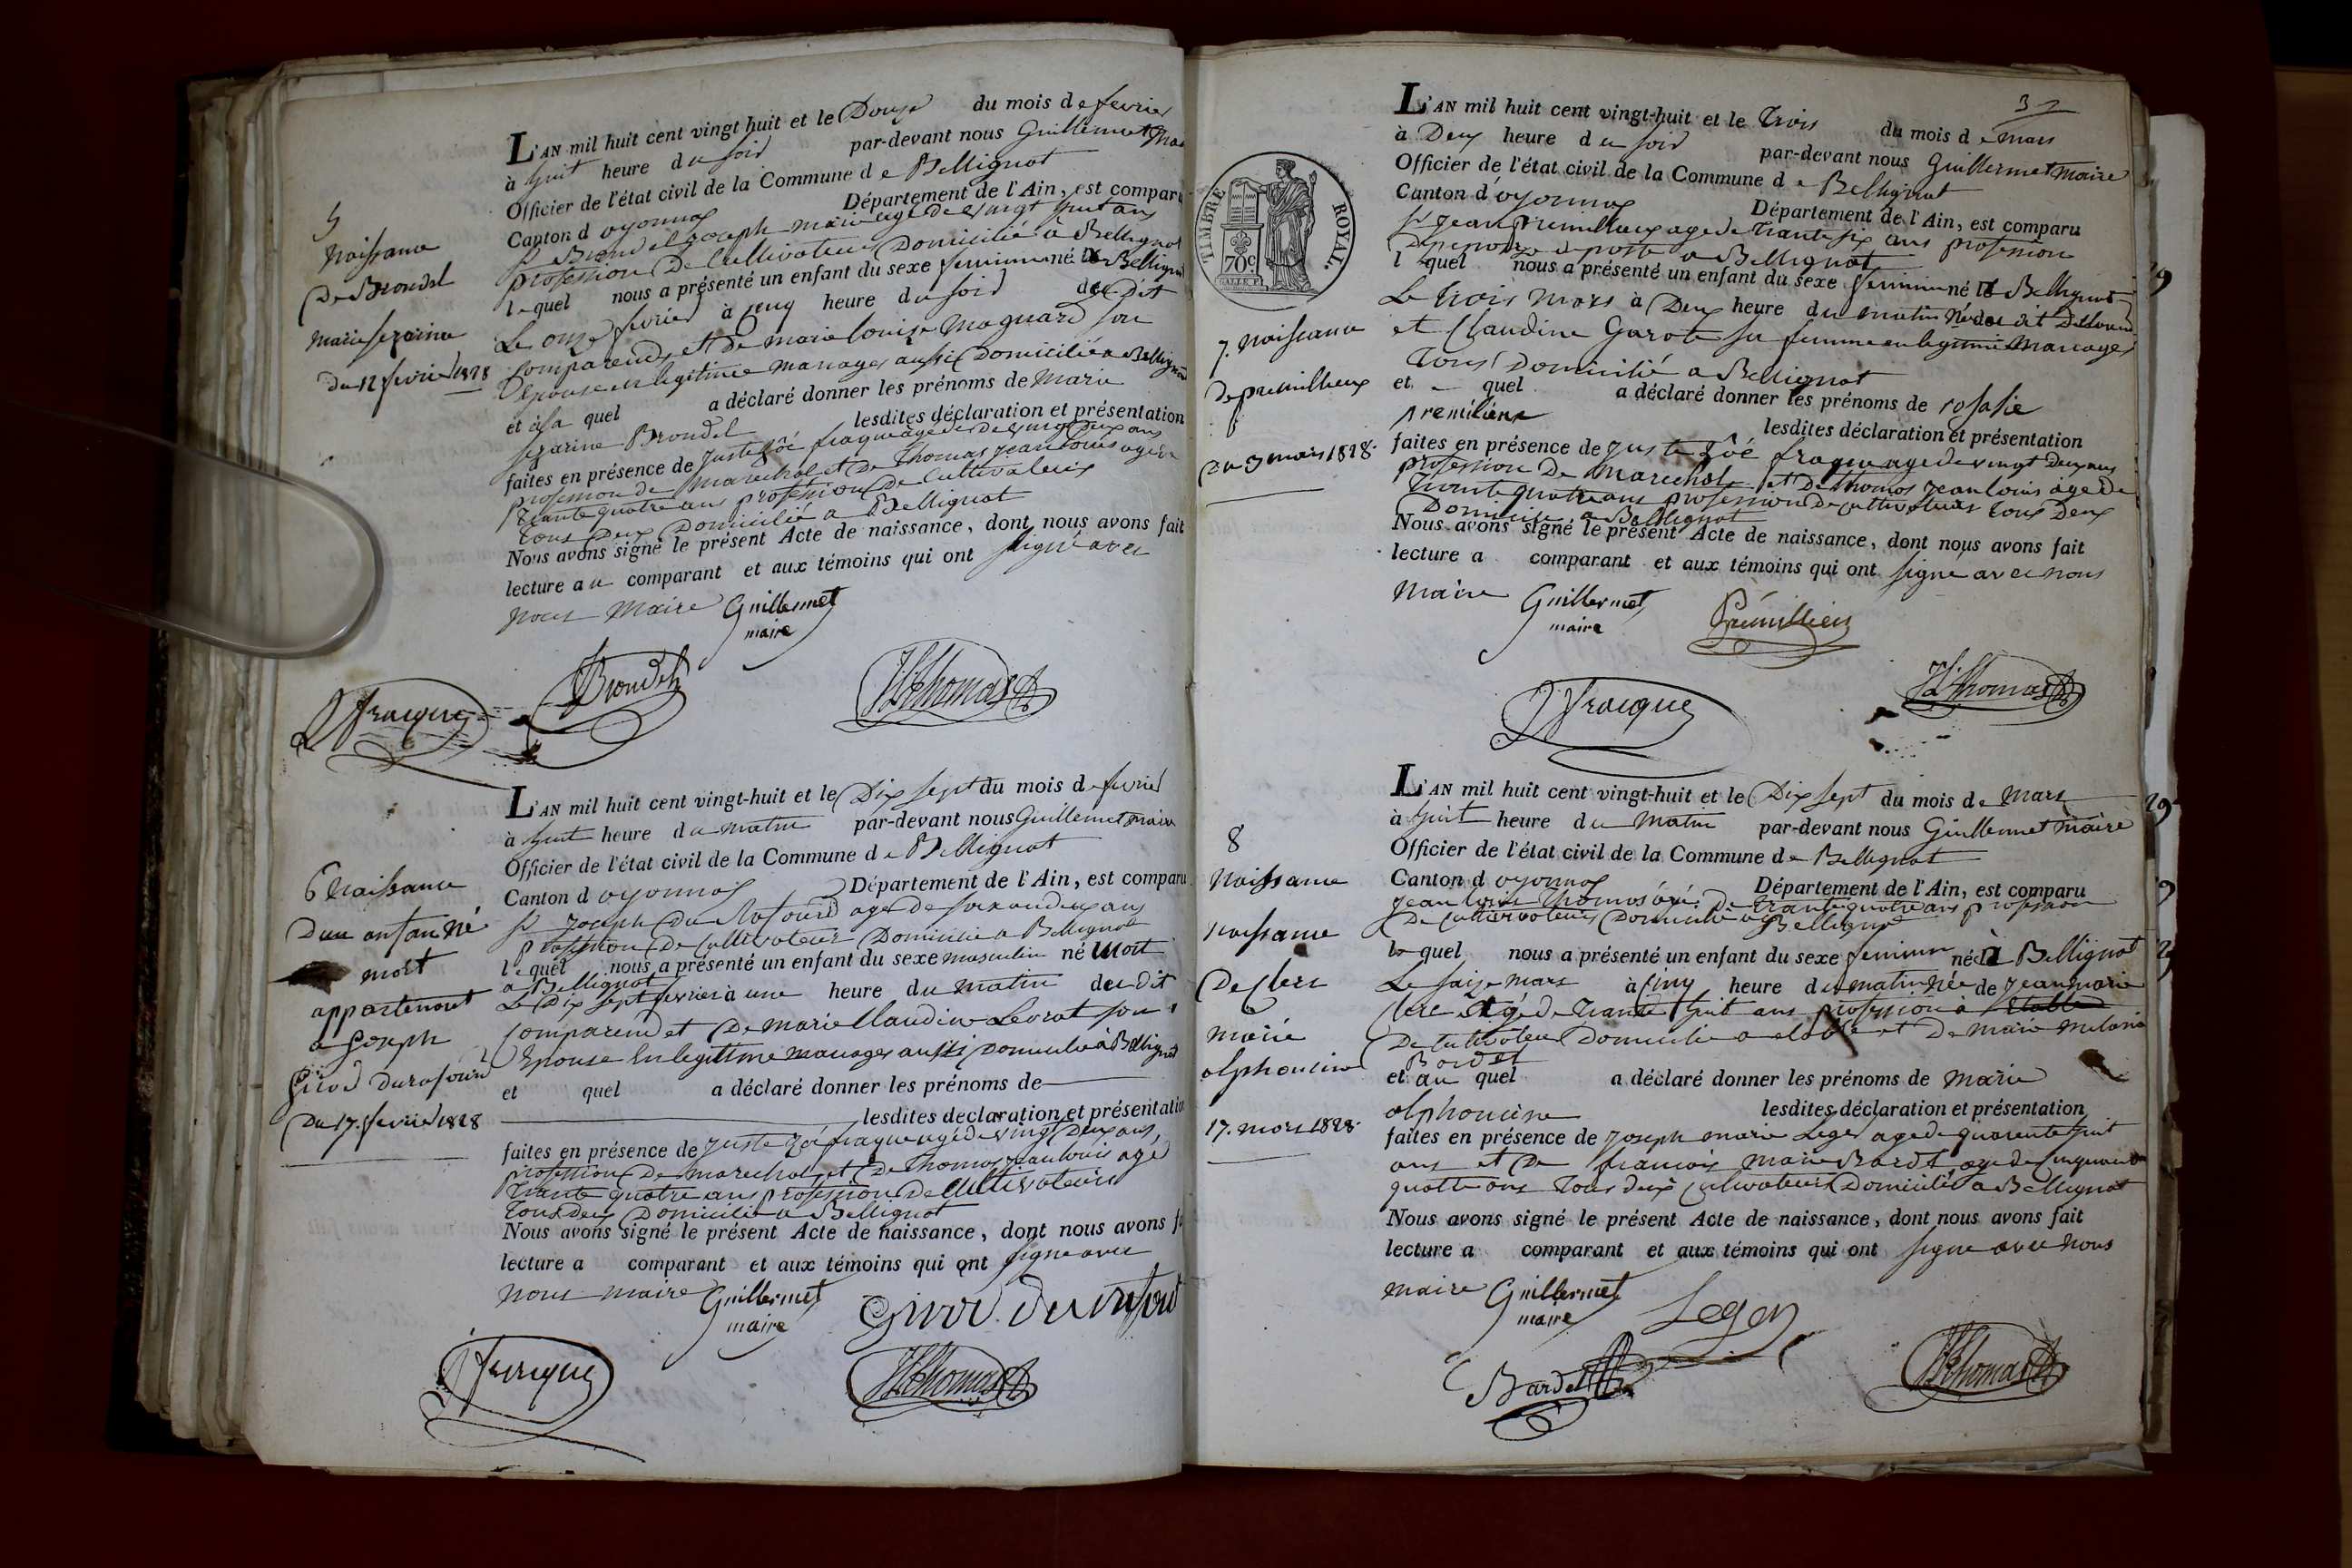 5
Naissance
De Brondel
marie sezarine
Du 12 fevrier 1828
L'AN mil huit cent vingt huit et le Douze du mois de fevrier
à huit heure du soir par-devant nous Guillermet
Officier de l'état civil de la Commune de Bellignat
Canton d oyonnax Département de l'Ain, est comparu
sr Brondel Joseph marie agé de vingt huit ans
profession De Cultivateur Domicilié a Bellignat
lequel nous a présenté un enfant du sexe feminin né a Bellignat
Le onze fevrier à cinq heure du soir du Dit
Comparend et De marie louise Magnard son
Epouse en legitime mariages aussi Domiciliée a Bellignat
et à la quel a déclaré donner les prénoms de Marie
sezarine Brondel lesdites déclaration et présentation
faites en présence de Juste Zoé fraque agé de vingt Deux ans
profession de marechal et De Thomas jean louis agé de
trante quatre ans profession De Cultivateur
tous Deux Domicilié a Bellignat
Nous avons signé le présent Acte de naissance, dont nous avons fait
lecture au comparant et aux témoins qui ont signé avec
nous Maire Guillermet
maire
Brondel
Fracque
JL Thomas
6 Naissance
Dun enfan né
mort
appartenant
a Joseph
Girod Durafourd
Du 17 fevrier 1828
L'AN mil huit cent vingt-huit et le Dix sept du mois de fevrier
à huit heure du matin par-devant nous Guillermet maire
Officier de l'état civil de la Commune de Bellignat
Canton d oyonnax Département de l'Ain, est comparu
sr Joseph Du Rafourd agé de soixandeux ans
profession De Cultivateur Domicilié a Bellignat
lequel nous a présenté un enfant du sexe masculin né Mort
a Bellignat
Le Dix sept fevrier à une heure du matin du dit
Comparend et De marie Claudine Levrat son
Epouse En legitime mariages aussi Domiciliée à Bellignat
et quel a déclaré donner les prénoms de
lesdites declaration et présentation
faites en présence de Juste Zoé fraque agé de vingt Deux ans,
profession De marechal et De Thomas jean louis agé
trante quatre ans profession De Cultivateur
tous deux Domicilié a Bellignat
Nous avons signé le présent Acte de naissance, dont nous avons
lecture a comparant et aux témoins qui ont signe avec
Nous maire Guillermet
maire
Girod durafourd
Fracque
JL Thomas
TIMBRE ROYAL.
70c
7. Naissance
De premillieux
Du 3 mars 1828.
L'AN mil huit cent vingt-huit et le Trois du mois de mars
à Deux heure du soir par-devant nous Guillermet maire
Officier de l'état civil de la Commune de Bellignat
Canton d oyonnax Département de l'Ain, est comparu
sr jean premillieux age de trante six ans profession
a Bellignat
l quel nous a présenté un enfant du sexe feminin né a Bellignat
Le trois mars à Deux heure du matin
et Claudine Garote sa femme en legitime Mariages
tous Domicilié a Bellignat
et quel a déclaré donner les prénoms de rosalie
premiliene lesdites déclaration et présentation
faites en présence de juste Zôé fraque age de vingt Deux ans
profession De Marechal et De thomas jean louis àge de
trante quatre ans profession De Cultivateur tous Deux
Domicilié a Bellignat
Nous avons signé le présent Acte de naissance, dont nous avons fait
lecture a comparant et aux témoins qui ont signe avec nous
Maire Guillermet
maire
Prémillieu
Fracque
JL Thomas
8
Naissance
naissance
De Clerc
marie
alphonsine
17. mars 1828.
L'AN mil huit cent vingt-huit et le Dix sept du mois de mars
à huit heure du matin par-devant nous Guillermet maire
Officier de l'état civil de la Commune de Bellignat
Canton d oyonnax Département de l'Ain, est comparu
jean louis Thomas agé De trante quatre ans profession
De cultivateur Domicilié a Bellignat
le quel nous a présenté un enfant du sexe feminin né à Bellignat
Le saize mars à Cinq heure du matin née de Jean marie
Clerc agé de trante huit ans profession
De Cultivateur Domicilié a et De marie melanie
Bardet
et au quel a déclaré donner les prénoms de Marie
alphonsine lesdites déclaration et présentation
faites en présence de Joseph marie Leger age de quarente huit
ans et De francois marie Bardet, age de Cinquante
quattre ans tous deux cultivateurs Domicilié a Bellignat
Nous avons signé le présent Acte de naissance, dont nous avons fait
lecture a comparant et aux témoins qui ont signe avec nous
maire Guillermet
maire
Leger
Bardet
JL Thomas